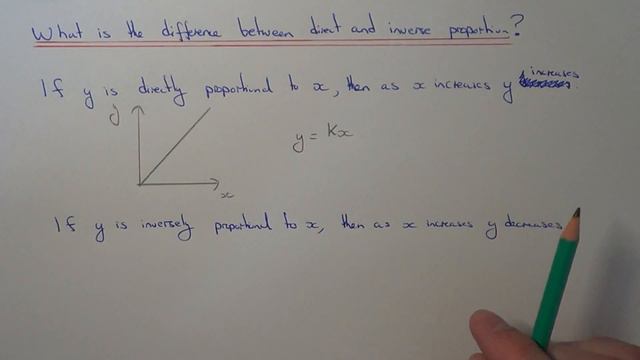 What is the difference between direct and inverse proportion?
If y is directly proportional to x, then as x increases y increases.
y
y = Kx
x
If y is inversely proportional to x, then as x increases y decreases